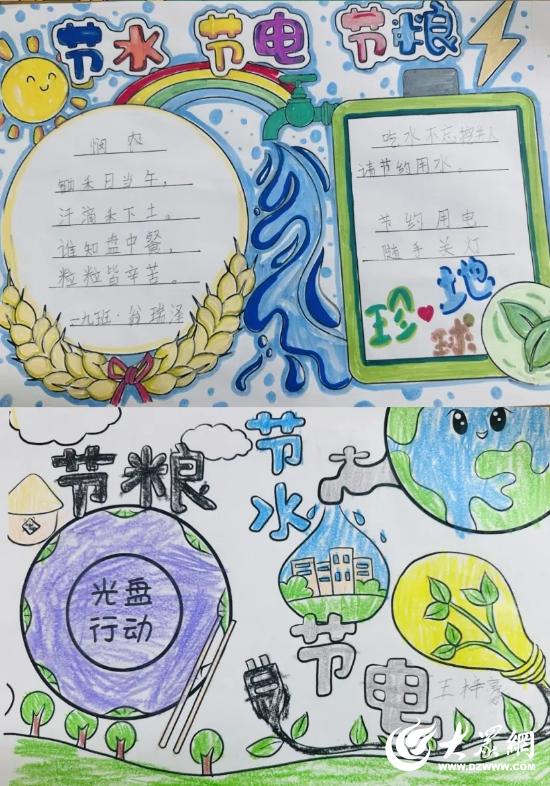 节水 节电 节粮
悯农
锄禾日当午，
汗滴禾下土。
谁知盘中餐，
粒粒皆辛苦。
一九班·翁瑞泽
吃水不忘挖井人
请节约用水。
节约用电
随手关灯
珍地球
节粮
节水
光盘
行动
节电
王梓豪
大众網
www.dzwww.com